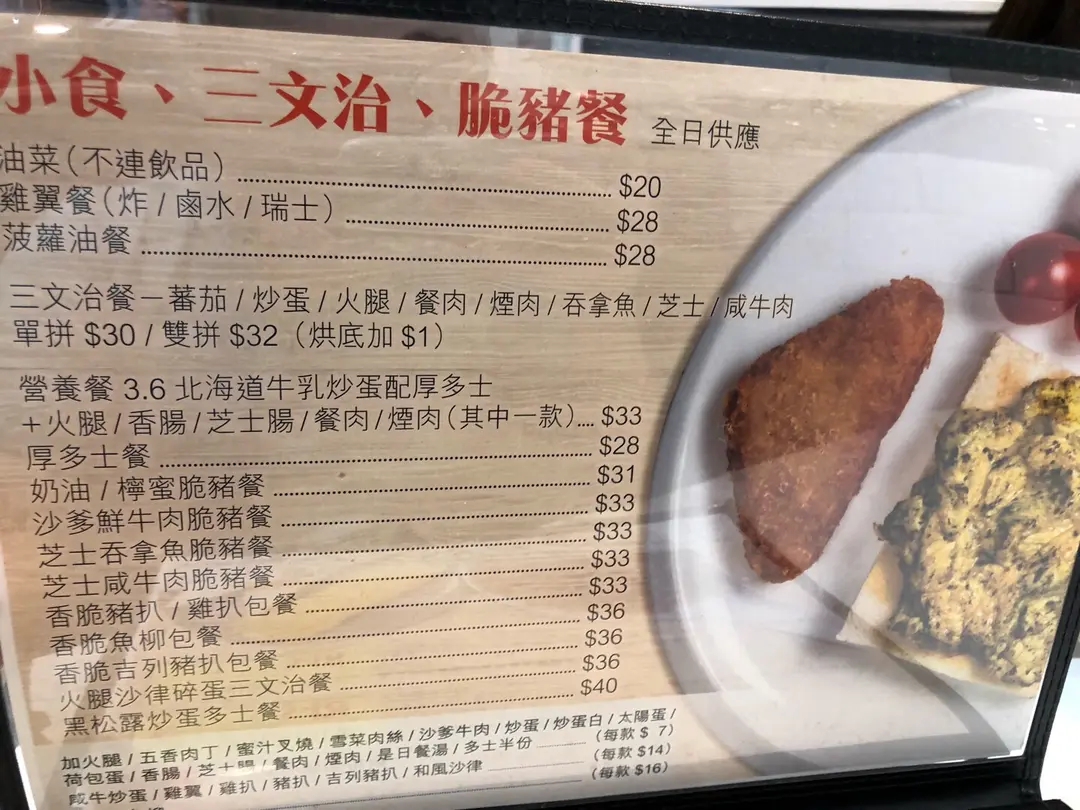 小食、三文治、脆豬餐 全日供應
油菜（不連飲品） $20
雞翼餐（炸 / 鹵水 / 瑞士） $28
菠蘿油餐 $28
三文治餐－蕃茄 / 炒蛋 / 火腿 / 餐肉 / 煙肉 / 吞拿魚 / 芝士 / 咸牛肉
單拼 $30 / 雙拼 $32（烘底加 $1）
營養餐 3.6 北海道牛乳炒蛋配厚多士
＋火腿 / 香腸 / 芝士腸 / 餐肉 / 煙肉（其中一款） $33
厚多士餐 $28
奶油 / 檸蜜脆豬餐 $31
沙爹鮮牛肉脆豬餐 $33
芝士吞拿魚脆豬餐 $33
芝士咸牛肉脆豬餐 $33
香脆豬扒 / 雞扒包餐 $33
香脆魚柳包餐 $36
香脆吉列豬扒包餐 $36
火腿沙律碎蛋三文治餐 $36
黑松露炒蛋多士餐 $40
加火腿 / 五香肉丁 / 蜜汁叉燒 / 雪菜肉絲 / 沙爹牛肉 / 炒蛋 / 炒蛋白 / 太陽蛋 /
荷包蛋 / 香腸 / 芝士腸 / 餐肉 / 煙肉 / 是日餐湯 / 多士半份 （每款 $ 7）
咸牛炒蛋 / 雞翼 / 雞扒 / 豬扒 / 吉列豬扒 / 和風沙律 （每款 $14）
（每款 $16）